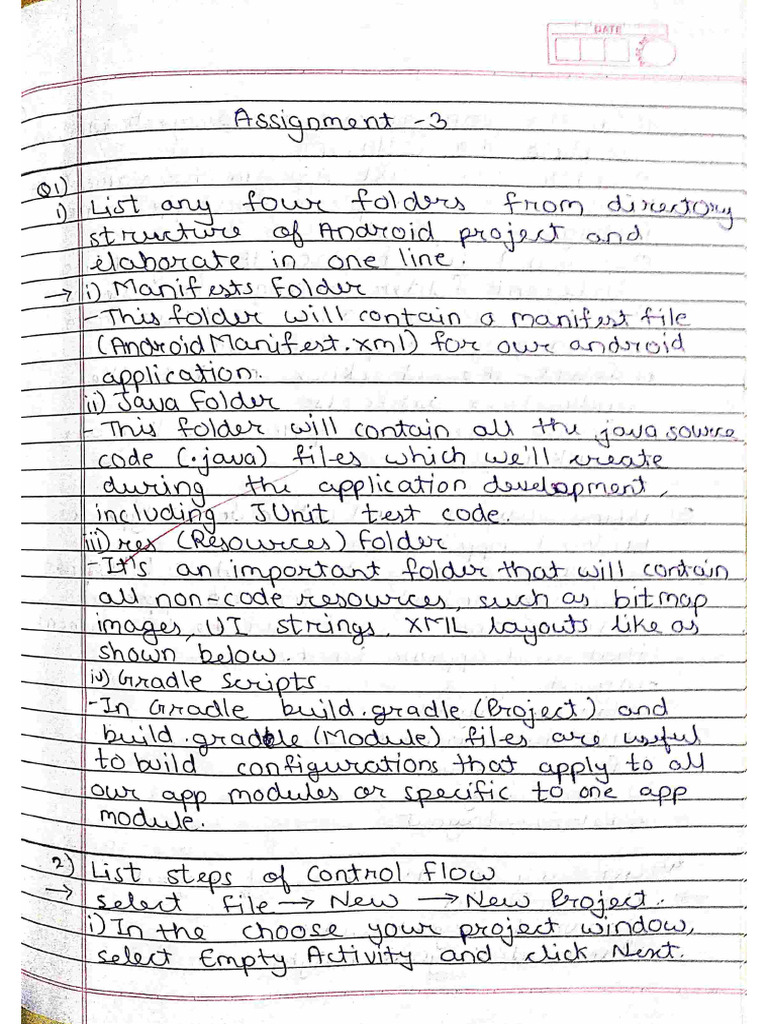 DATE
Assignment - 3
Q1)
i) List any four folders from directory
structure of Android project and
elaborate in one line.
→ i) Manifests Folder
- This folder will contain a manifest file
(AndroidManifest.xml) for our android
application.
ii) Java Folder
- This folder will contain all the java source
code (.java) files which we'll create
during the application development,
including JUnit test code.
iii) res (Resources) Folder
- It's an important folder that will contain
all non-code resources, such as bitmap
images, UI strings, XML layouts like as
shown below.
iv) Gradle Scripts
- In Gradle build.gradle (Project) and
build.gradle (Module) files are useful
to build configurations that apply to all
our app modules or specific to one app
module.
2) List steps of control flow
→ select File → New → New Project.
i) In the choose your project window,
select Empty Activity and click Next.